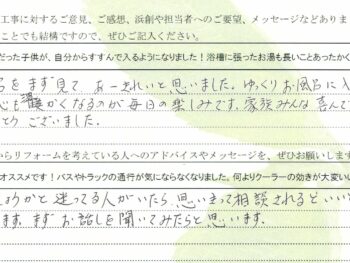 工事に対するご意見、ご感想、浜創や担当者へのご要望、メッセージなどありま
ことでも結構ですので、ぜひご記入ください。
だった子供が、自分からすすんで入るようになりました!浴槽に張ったお湯も長いことあったかく
をまず見て あーきれいと思いました。ゆっくりお風呂に入
心も 温かくなるのが毎日の楽しみです。家族みんな喜んで
とう ございました。
からリフォームを考えている人へのアドバイスやメッセージを、ぜひお願いします
オススメです!バスやトラックの通行が気にならなくなりました。何よりクーラーの効きが大変い
しようかと迷ってる人がいたら 思いきって相談されるといい
ます。まず お話しを聞いてみたらと思います。